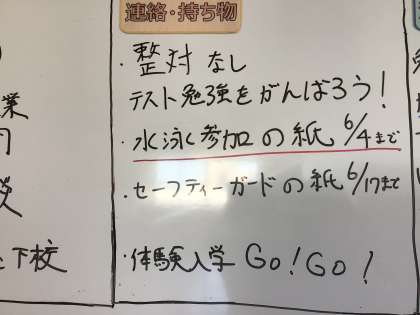 連絡・持ち物
・整対 なし
テスト勉強をがんばろう！
・水泳参加の紙 6/4まで
・セーフティーガードの紙 6/17まで
・体験入学 GO！GO！
業
下校